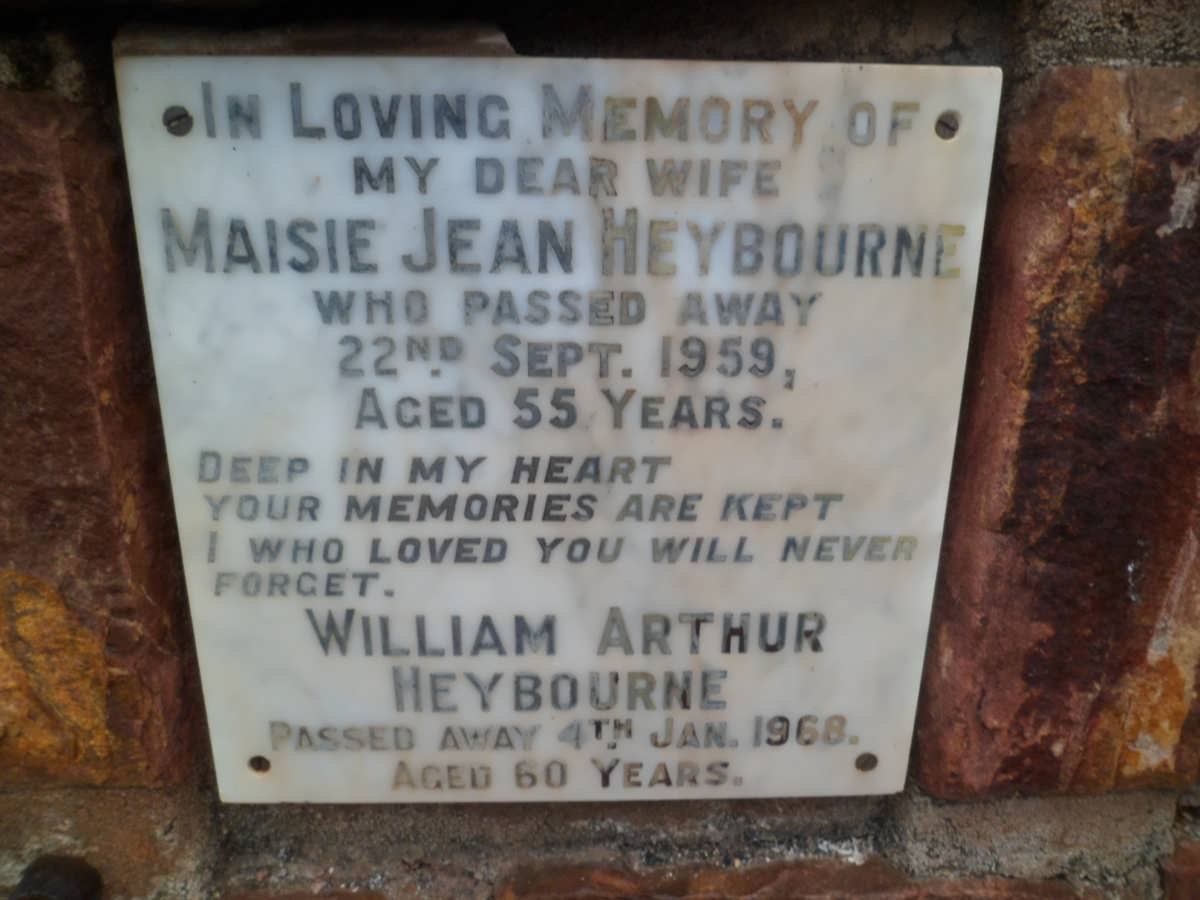 In Loving Memory of
MY DEAR WIFE
Maisie Jean Heybourne
WHO PASSED AWAY
22ND Sept. 1959,
Aged 55 Years.
Deep in my heart
your memories are kept
I who loved you will never
forget.
William Arthur
Heybourne
Passed away 4TH Jan. 1968.
Aged 60 Years.